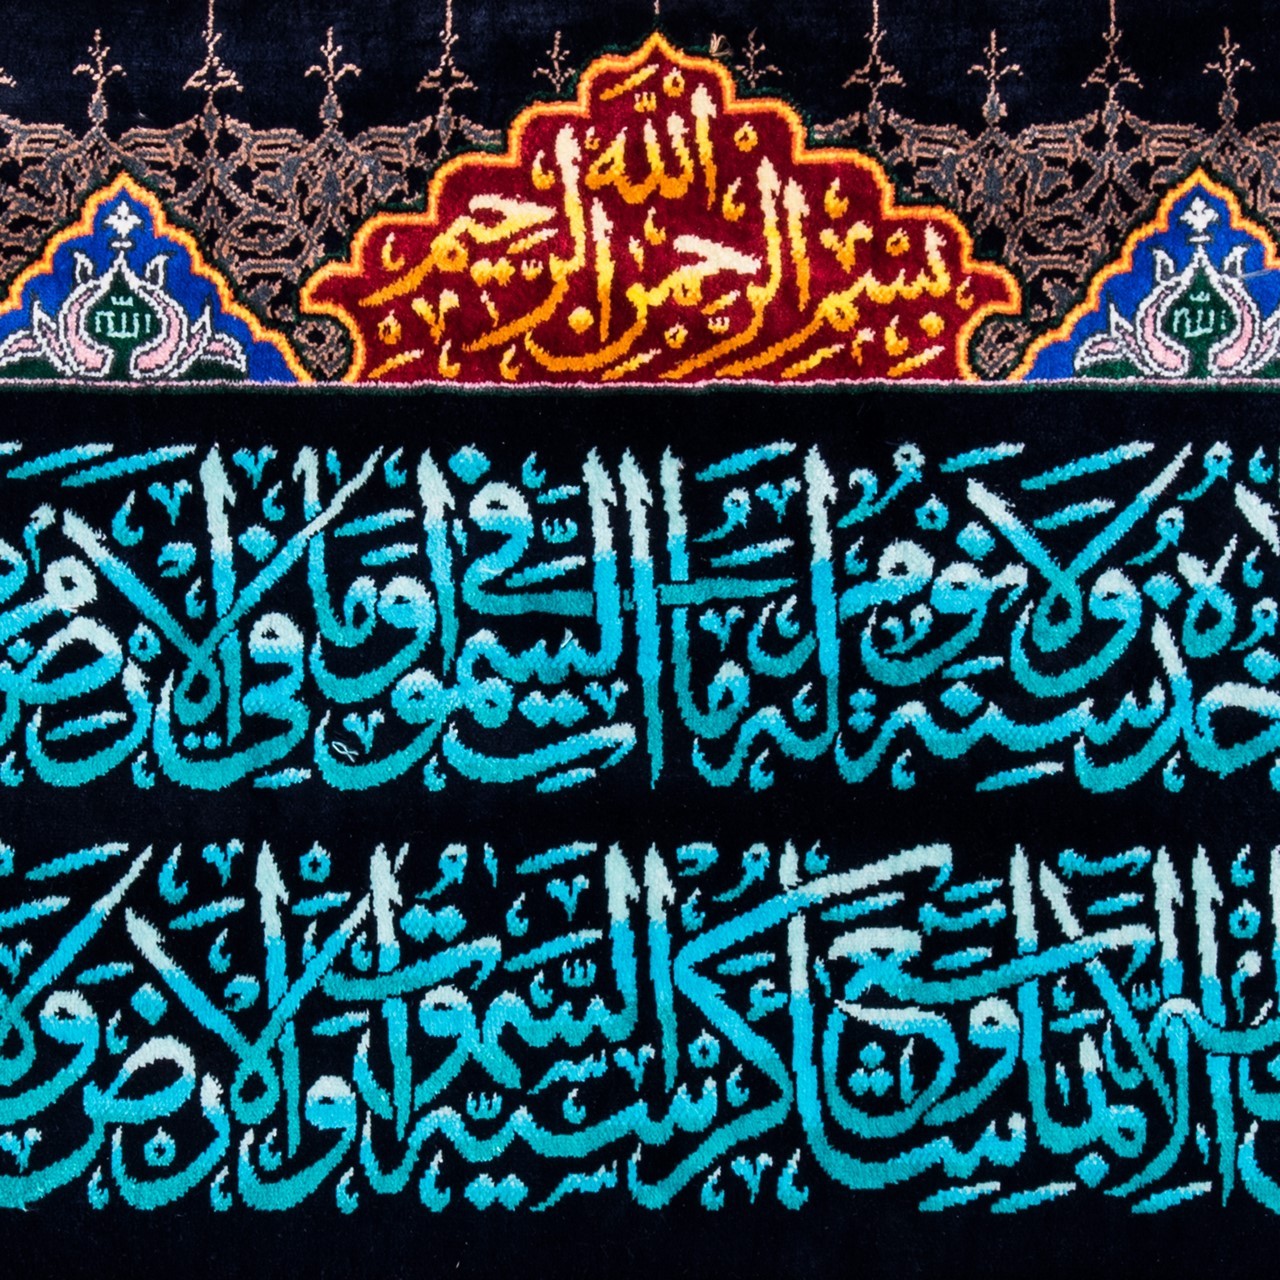 بِسْمِ اللهِ الرَّحْمٰنِ الرَّحِيمِ
الله
الله
سِنَةٌ وَلَا نَوْمٌ لَهُ مَا فِي السَّمٰوَاتِ وَمَا فِي الْاَرْضِ
اِلَّا بِمَا شَاءَ وَسِعَ كُرْسِيُّهُ السَّمٰوَاتِ وَالْاَرْضَ وَلَا